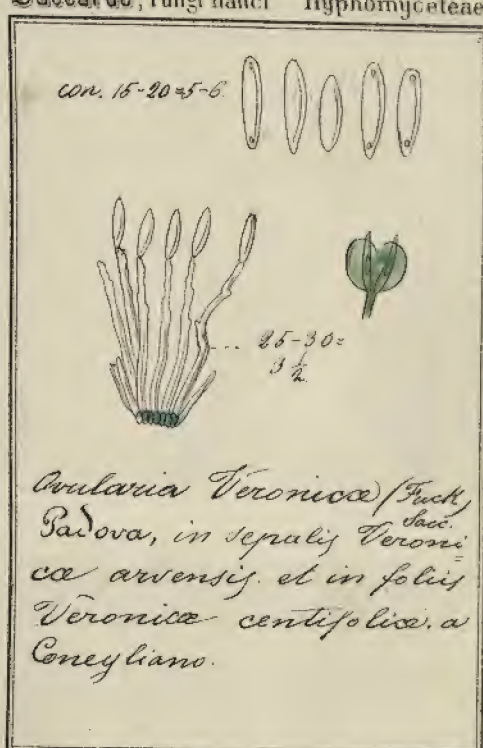 Saccardo, Fungi italici Hyphomyceteae
con. 15-20=5-6.
25-30=
3 1/2
Ovularia Veronicæ (Fuck)
Sacc.
Padova, in sepalis Veroni=
cæ arvensis. et in foliis
Veronicæ centifoliæ. a
Conegliano.